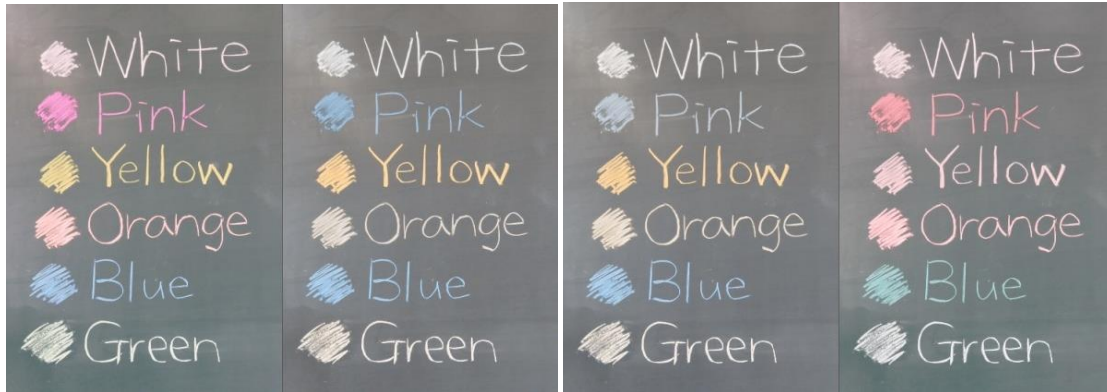 White
Pink
Yellow
Orange
Blue
Green
White
Pink
Yellow
Orange
Blue
Green
White
Pink
Yellow
Orange
Blue
Green
White
Pink
Yellow
Orange
Blue
Green